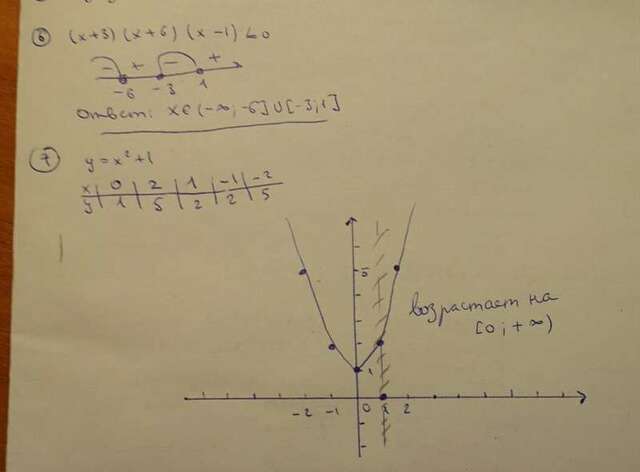 ⑥ (x+3)(x+6)(x-1)<0
- + - +
-6 -3 1
Ответ: x∈(-∞;-6]∪[-3;1]
⑦ y=x²+1
x | 0 | 2 | 1 | -1 | -2
y | 1 | 5 | 2 | 2 | 5
5
возрастает на
[0;+∞)
1
-2 -1 0 2